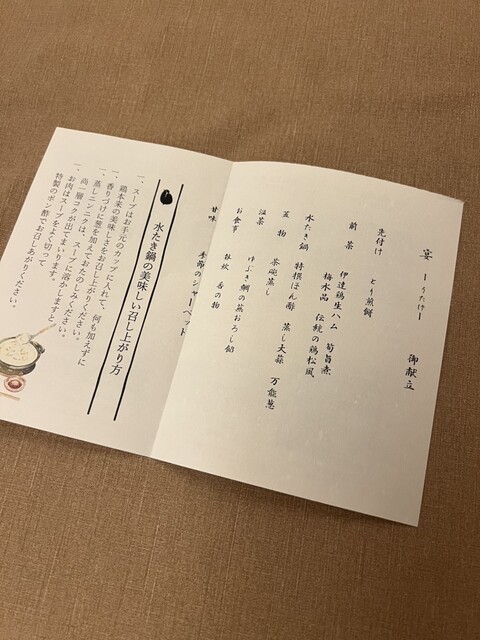 宴 ーうたげー 御献立
先付け とり煎餅
前菜 伊達鶏生ハム 筍旨煮
梅水晶 伝統の鶏松風
水たき鍋 特撰ぽん酢 蒸し大蒜 万能葱
蓋物 茶碗蒸し
温菜 ゆぶき鯛の蕪おろし餡
お食事 雑炊 香の物
甘味 季節のシャーベット
水たき鍋の美味しい召し上がり方
一、スープはお手元のカップに入れて、何も加えずに
鶏本来の美味しさをお召し上がりください。
一、香りづけに葱を加えておたのしみください。
一、蒸しニンニクは、スープに溶かしますと、
尚一層コクが出てまいります。
一、お肉はスープをよく切って
特製のポン酢でお召しあがりください。